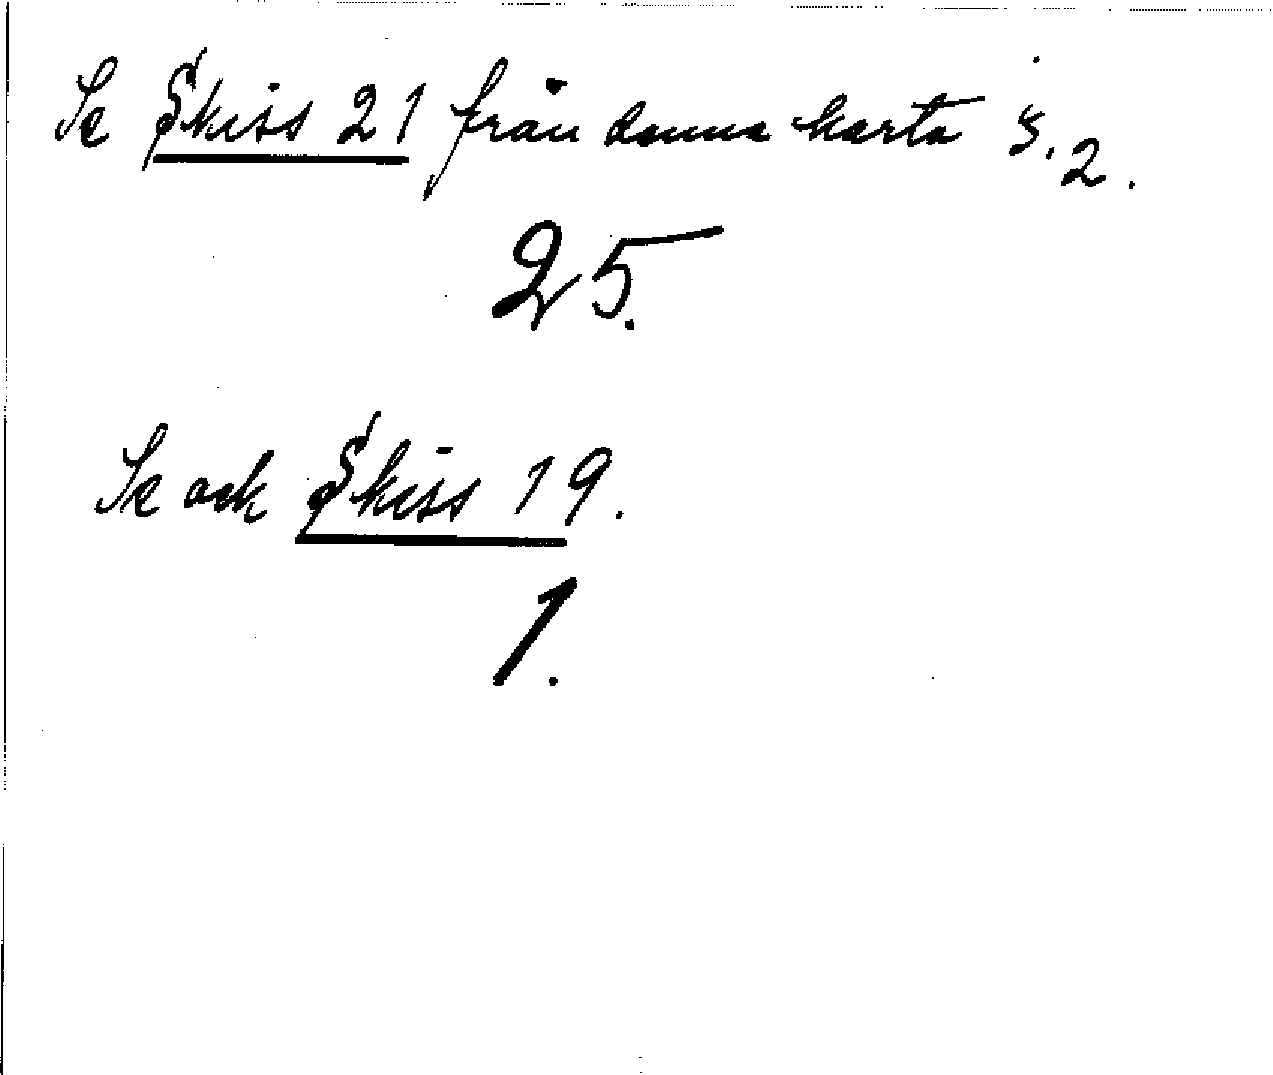 Se Skiss 21 från denna karta s. 2.
25.
Se ock Skiss 19.
1.